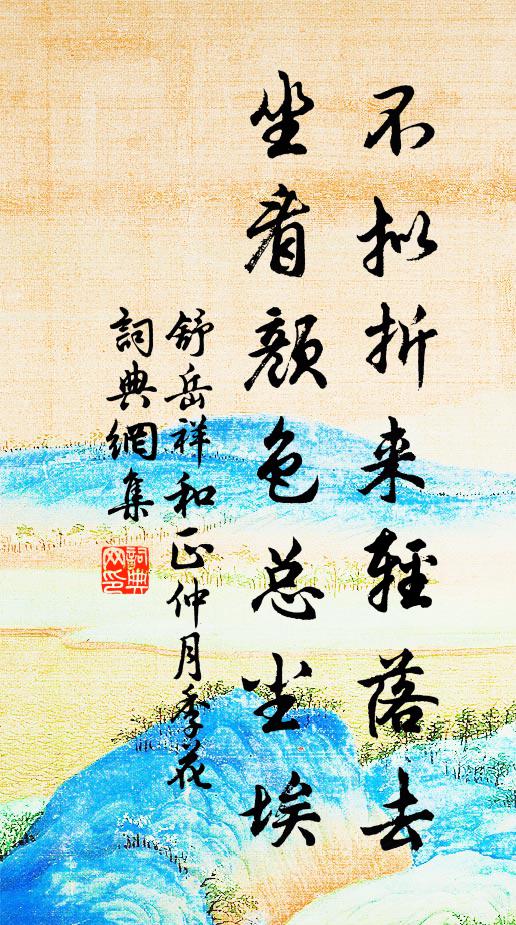 不拟折来轻落去
坐看颜色总尘埃
舒岳祥和正仲月季花
詞典網集
詞典网印